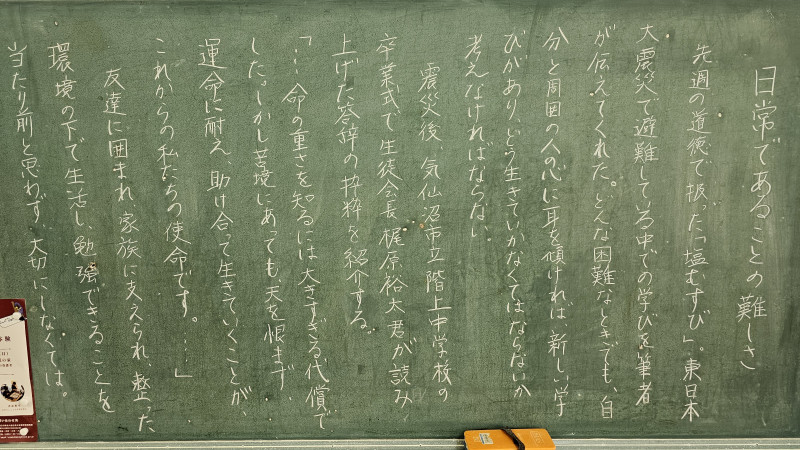 日常であることの難しさ
先週の道徳で扱った「塩むすび」、東日本
大震災で避難している中での学びを筆者
が伝えてくれた。どんな困難なときでも、自
分と周囲の人の心に耳を傾ければ、新しい学
びがあり、どう生きていかなくてはならないか
考えなければならない
震災後、気仙沼市立階上中学校の
卒業式で生徒会長梶原裕太君が読み
上げた答辞の抜粋を紹介する。
「…命の重さを知るには大きすぎる代償で
した。しかし苦境にあっても、天を恨まず、
運命に耐え、助け合って生きていくことが、
これからの私たちの使命です。…」
友達に囲まれ、家族に支えられ、整った
環境の下で生活し、勉強できることを
当たり前と思わず、大切にしなくては。